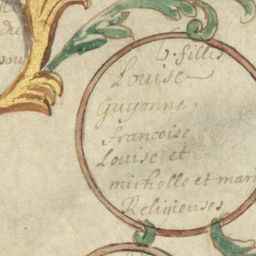 v. filles
Louise
Guyonne,
francoise
Louise et
michelle et mari
Religieuses